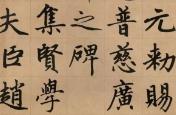 元勅賜
普慈廣
之碑
集賢學
夫臣趙